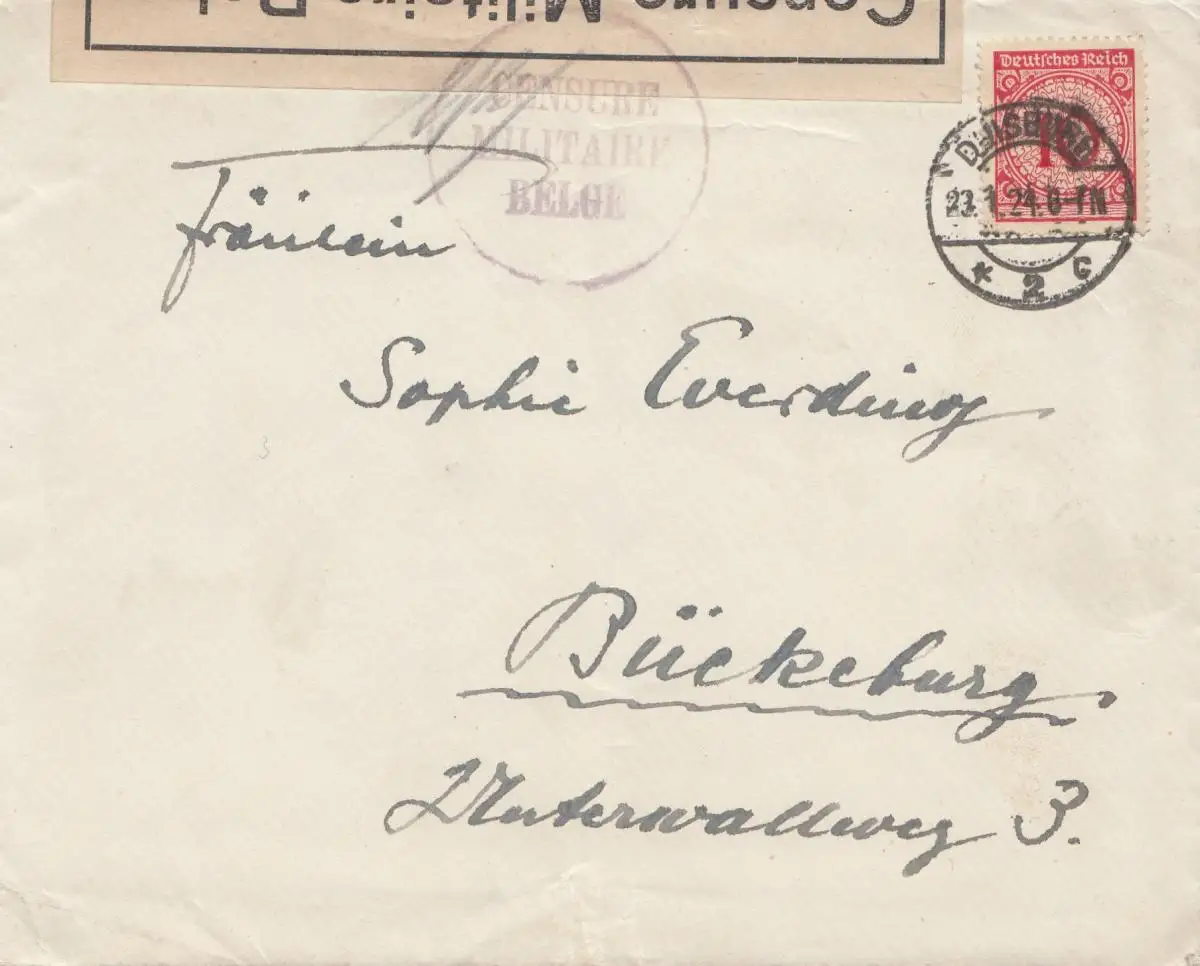 Censure Militaire Bel
CENSURE
MILITAIRE
BELGE
Deutsches Reich
10
DUISBURG
23.1.24.6-7N
* 2 c
Fräulein
Sophie Everding
Bückeburg
Unterwallweg 3.